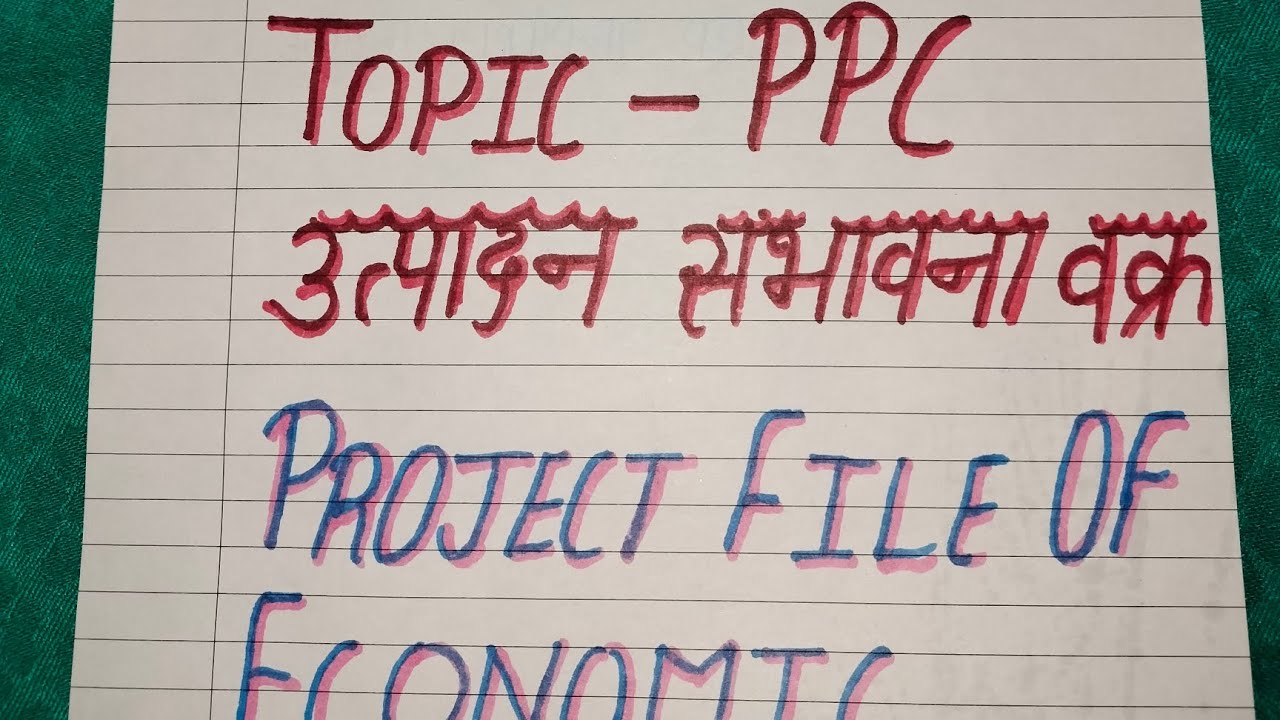 TOPIC - PPC
उत्पादन संभावना वक्र
PROJECT FILE OF
ECONOMIC